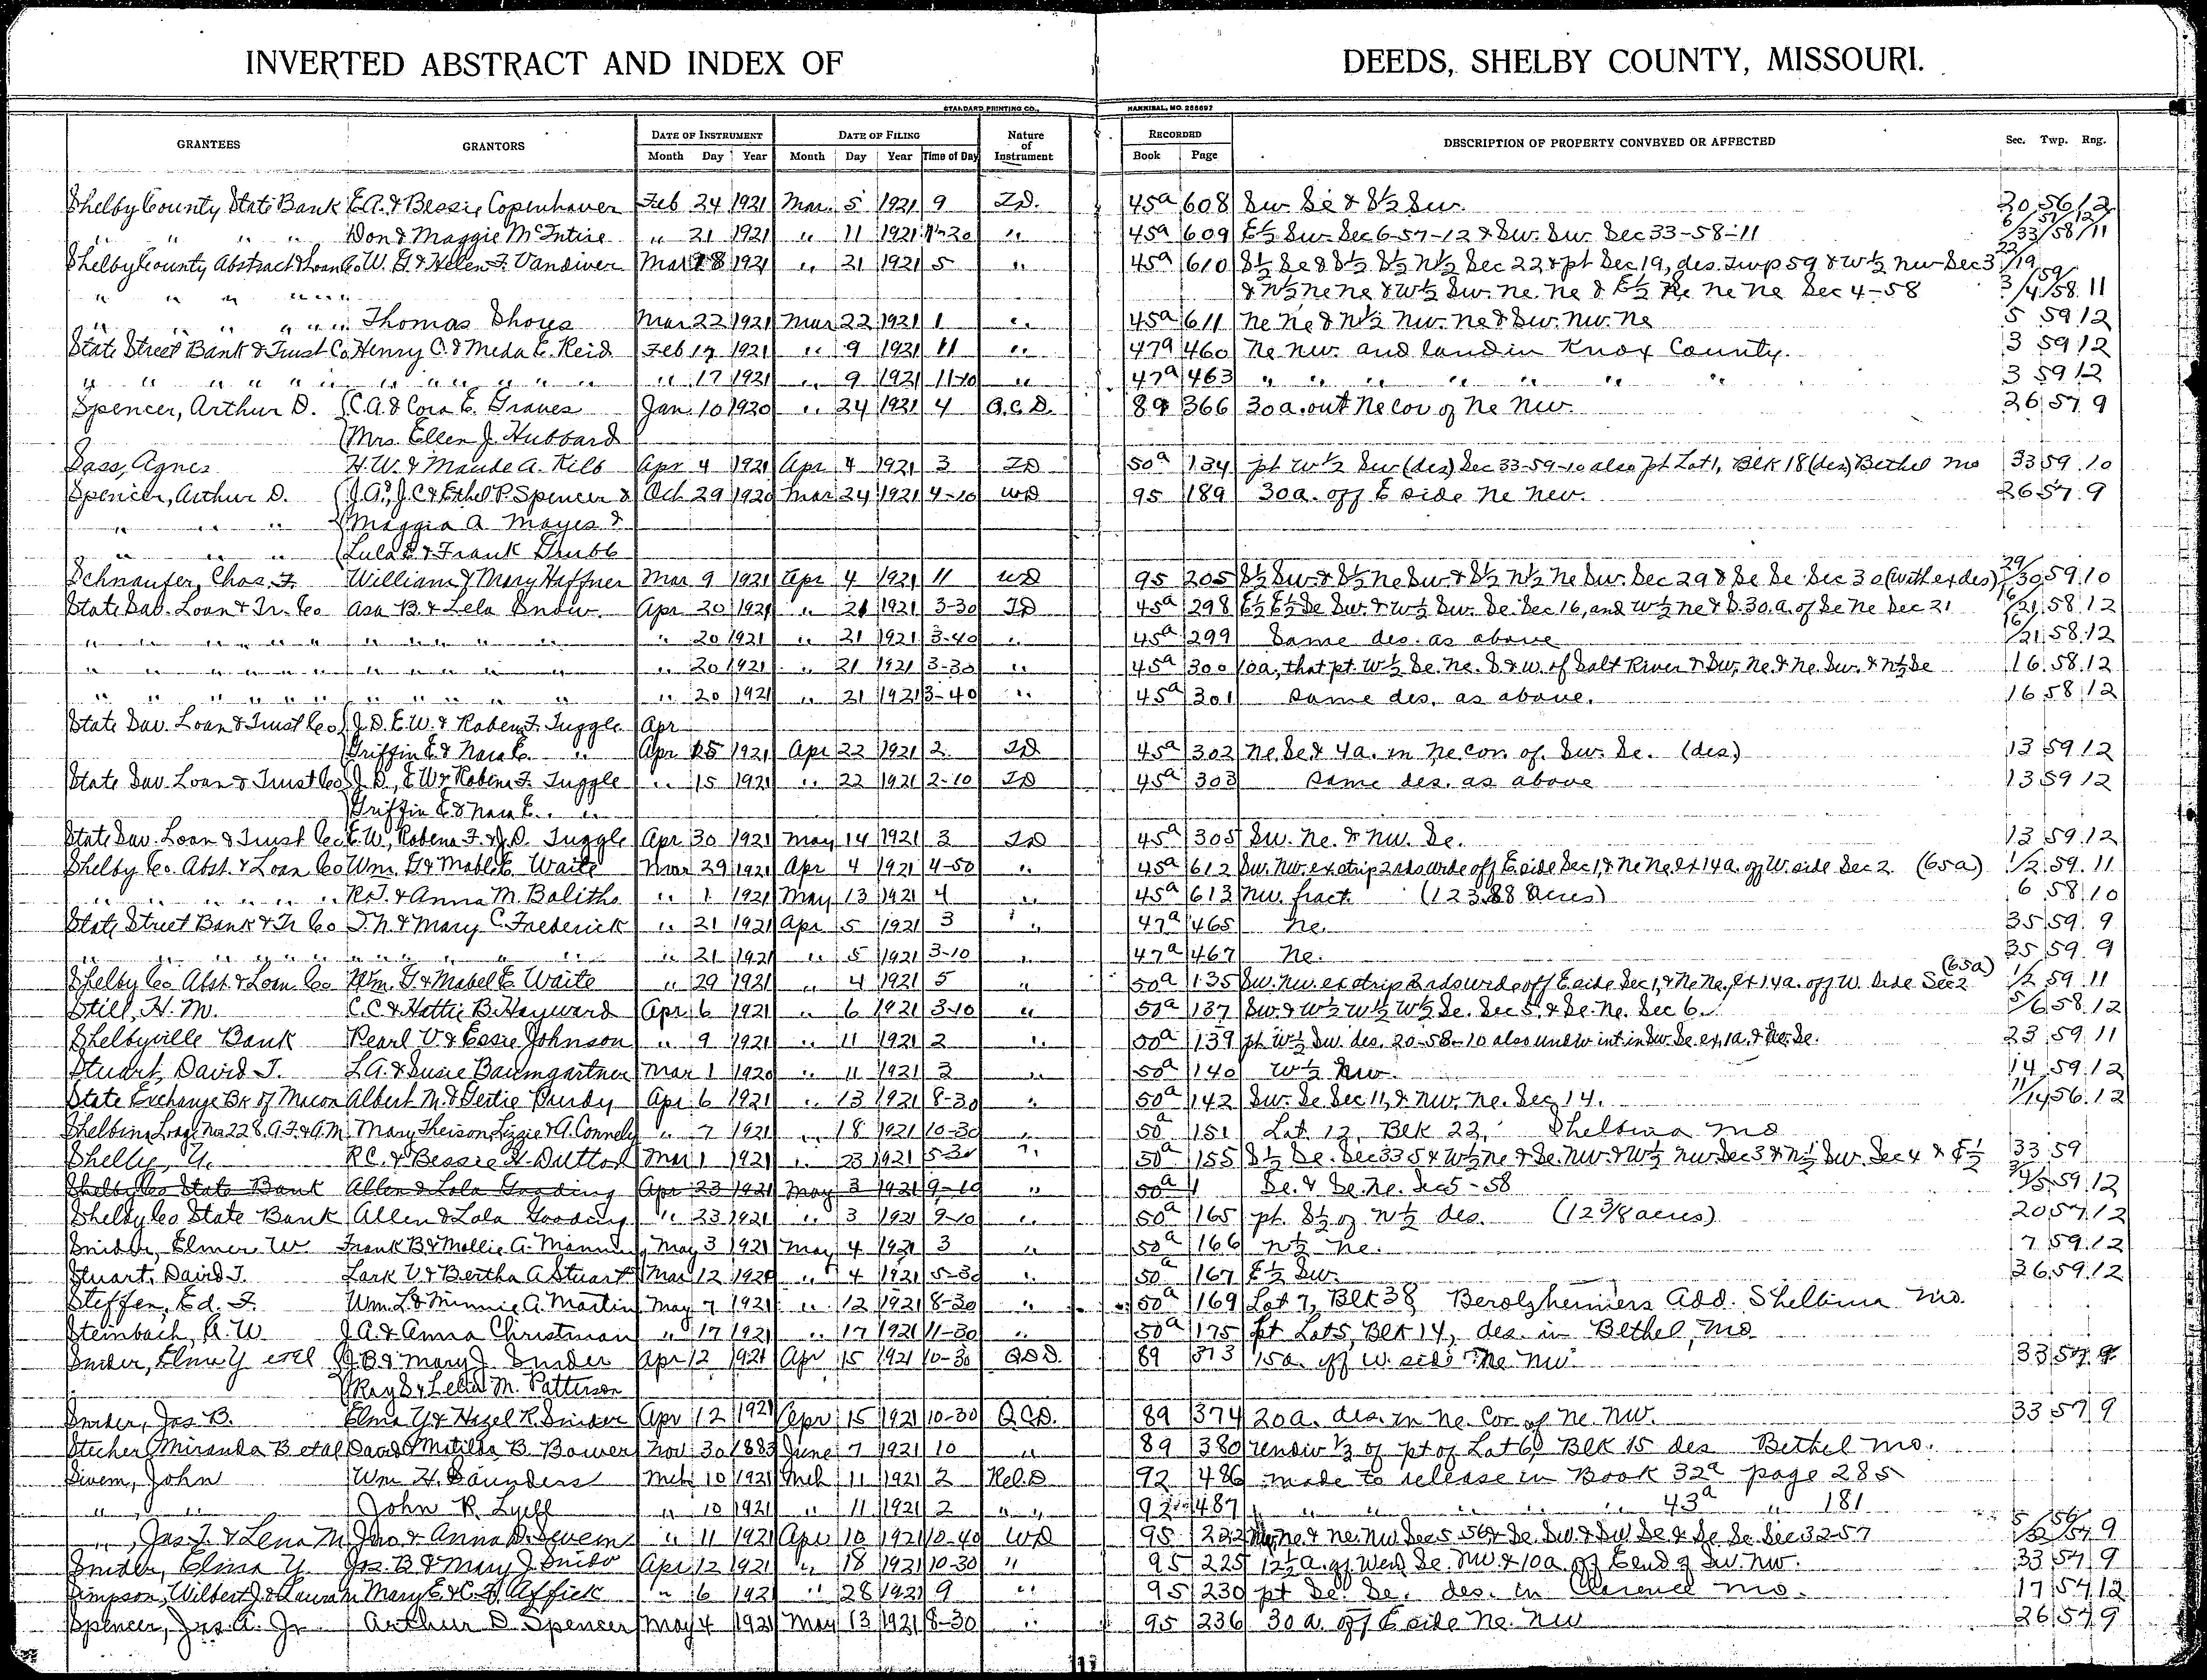 INVERTED ABSTRACT AND INDEX OF DEEDS, SHELBY COUNTY, MISSOURI.
STANDARD PRINTING CO., HANNIBAL, MO. 258697
GRANTEES GRANTORS DATE OF INSTRUMENT DATE OF FILING Nature of Instrument RECORDED DESCRIPTION OF PROPERTY CONVEYED OR AFFECTED Sec. Twp. Rng.
Month Day Year Month Day Year Time of Day Book Page
Shelby County State Bank E.A. & Bessie Copenhaver Feb 24 1921 Mar. 5 1921 9 T.D. 45a 608 Sw. Se & S½ Sw. 20 56 12
" " " " Don & Maggie McIntire " 21 1921 " 11 1921 11-20 " 45a 609 E½ Sw. Sec 6-57-12 & Sw. Sw. Sec 33-58-11 6/33 57/58 12/11
Shelby County Abstract & Loan Co W. G. & Helen F. Vandiver Mar 18 1921 " 21 1921 5 " 45a 610 S½ Se & S½ S½ N½ Sec 22 & pt Sec 19, des. Twp 59 & W½ Nw Sec 3 22/19
" " " " " " & N½ Ne Ne & W½ Sw. Ne. Ne & E½ Ne Ne Sec 4-58 3/4 59/58 11
" " " " " " Thomas Shoys Mar 22 1921 Mar 22 1921 1 " 45a 611 Ne Ne & N½ Nw. Ne & Sw. Nw. Ne 5 59 12
State Street Bank & Trust Co Henry C. & Meda E. Reid Feb 17 1921 " 9 1921 11 " 47a 460 Ne Nw. and land in Knox County. 3 59 12
" " " " " " " " " " " " 17 1921 " 9 1921 11-10 " 47a 463 " " " " " " " 3 59 12
Spencer, Arthur D. (C.A. & Cora E. Graves Jan. 10 1920 " 24 1921 4 Q.C.D. 89 366 30 a. out Ne cor of Ne Nw. 26 57 9
(Mrs. Ellen J. Hubbard
Sass, Agnes H.W. & Maude A. Kilb Apr 4 1921 Apr 4 1921 3 TD 50a 134 pt W½ Sw (des) Sec 33-59-10 also pt Lot 1, Blk 18 (des) Bethel Mo 33 59 10
Spencer, Arthur D. (J.A., J.C. & Ethel P. Spencer & Oct 29 1920 Mar 24 1921 4-10 WD 95 189 30 a. off E side Ne Nw. 26 57 9
" " " (Maggia A Mayes &
" " " (Lula E & Frank Grubb
Schnaufer, Chas. F. William & Mary Haffner Mar 9 1921 Apr 4 1921 11 WD 95 205 S½ Sw. & S½ Ne Sw & S½ N½ Ne Sw. Sec 29 & Se Se Sec 30 (with ex des) 29/30 59 10
State Sav. Loan & Tr. Co Asa B. & Lela Snow. Apr 20 1921 " 21 1921 3-30 TD 45a 298 E½ E½ Se Sw. & W½ Sw. Se Sec 16, and W½ Ne & S. 30. a. of Se Ne Sec 21 16/21 58 12
" " " " " " " " " " " 20 1921 " 21 1921 3-40 " 45a 299 Same des. as above 16/21 58 12
" " " " " " " " " " " 20 1921 " 21 1921 3-30 " 45a 300 10 a, that pt. W½ Se. Ne. S & W. of Salt River & Sw. Ne & Ne. Sw. & N½ Se 16 58 12
" " " " " " " " " " " 20 1921 " 21 1921 3-40 " 45a 301 Same des. as above. 16 58 12
State Sav. Loan & Trust Co (J. D. E. W. & Robena F. Tuggle Apr
(Griffin E. & Nora E. " Apr 15 1921 Apr 22 1921 2. TD 45a 302 Ne. Se & 4 a. in Ne cor. of Sw. Se. (des) 13 59 12
State Sav. Loan & Trust Co (J. D., E. W. & Robena F. Tuggle " 15 1921 " 22 1921 2-10 TD 45a 303 Same des. as above 13 59 12
(Griffin E. & Nora E. "
State Sav. Loan & Trust Co E. W., Robena F. & J. D. Tuggle Apr 30 1921 May 14 1921 3 TD 45a 305 Sw. Ne. & Nw. Se. 13 59 12
Shelby Co. Abst. & Loan Co Wm. G. & Mabl E. Waite Mar 29 1921 Apr 4 1921 4-50 " 45a 612 Sw. Nw. ex strip 2 rds wide off E side Sec 1, & Ne Ne. ex 14 a. off W. side Sec 2. (65 a) 1/2 59 11
" " " " " " R.T. & Anna M. Baliths " 1 1921 May 13 1921 4 " 45a 613 Nw. fract. (123.88 Acres) 6 58 10
State Street Bank & Tr Co T. N. & Mary C. Frederick " 21 1921 Apr 5 1921 3 " 47a 465 Ne. 35 59 9
" " " " " " " " " " 21 1921 " 5 1921 3-10 " 47a 467 Ne. 35 59 9
Shelby Co Abst. & Loan Co Wm. G. & Mabel E. Waite " 29 1921 " 4 1921 5 " 50a 135 Sw. Nw. ex strip 2 rds wide off E side Sec 1, & Ne Ne. ex 14 a. off W. side Sec 2 (65 a) 1/2 59 11
Still, H. M. C. C. & Hattie B. Hayward Apr 6 1921 " 6 1921 3-10 " 50a 137 Sw. & W½ W½ W½ Se. Sec 5. & Se. Ne. Sec 6. 5/6 58 12
Shelbyville Bank Pearl V. & Essie Johnson " 9 1921 " 11 1921 2 " 50a 139 pt W½ Sw. des. 20-58-10 also undiv int in Sw. Se. ex 1a. & Ne. Se. 23 59 11
Stuart, David J. L.A. & Susie Baumgartner Mar 1 1920 " 11 1921 3 " 50a 140 W½ Nw. 14 59 12
State Exchange Bk of Macon Albert M. & Gertie Purdy Apr 6 1921 " 13 1921 8-30 " 50a 142 Sw. Se. Sec 11, & Nw. Ne. Sec 14. 11/14 56 12
Shelbina Lodge No. 228. A.F. & A.M. Mary Theison, Lizzie & A. Connely " 7 1921 " 18 1921 10-30 " 50a 151 Lot 12, Blk 22, Shelbina Mo
R.C. & Bessie H. Dutton Mar 1 1921 " 23 1921 5-30 " 50a 155 S½ Se. Sec 33 & W½ Ne & Se. Nw. & W½ Nw Sec 3 & N½ Sw. Sec 4 & E½ 33 59
Shelby Co State Bank Allen & Lola Gooding Apr 23 1921 May 3 1921 9-10 " 50a Se. & Se. Ne. Sec 5-58 59 12
Shelby Co State Bank Allen & Lola Gooding " 23 1921 " 3 1921 9-10 " 50a 165 pt. S½ of N½ des. (12 3/8 acres) 20 57 12
Snider, Elmer W. Frank B. & Mollie A. May 3 1921 May 4 1921 3 " 50a 166 N½ Ne. 7 59 12
Stuart, David J. Lark V. & Bertha A Stuart Mar 12 1920 " 4 1921 5-30 " 50a 167 E½ Sw. 36 59 12
Steffen, Ed. F. Wm. L. & Minnie A. Martin May 7 1921 " 12 1921 8-30 " 50a 169 Lot 7, Blk 38 Berolzheimers Add. Shelbina Mo.
Steinbach, A. W. J. A. & Anna Christman " 17 1921 " 17 1921 11-30 " 50a 175 pt Lot 5, Blk 14, des. in Bethel, Mo
Snider, Elma Y etal (J. B. & Mary J. Snider Apr 12 1921 Apr 15 1921 10-30 89 373 15 a. off W. side Ne Nw. 33 57 9
(Ray S & Lelia M. Patterson
Snider, Jas B. Elma Y & Hazel R. Snider Apr 12 1921 Apr 15 1921 10-30 Q.C.D. 89 374 20 a. des. in Ne. Cor of Ne. Nw. 33 57 9
Stecher, Miranda B etal David & Matilda B. Bower Nov 30 1883 June 7 1921 10 " 89 380 undiv ⅓ of pt of Lot 6, Blk 15 des Bethel Mo.
Sivem, John Wm. H. Saunders Mch 10 1921 Mch 11 1921 2 Rel. D 92 486 made to release in Book 32a page 285
" " John R. Lyell " 10 1921 " 11 1921 2 " " 92 487 " " " " " 43a " 181
", Jas. T. & Lena M Jno. & Anna D. Sivem " 11 1921 Apr 10 1921 10-40 WD 95 222 Ne & Ne. Nw Sec 5 56 & Se. Sw. & Sw Se & Se Se Sec 32-57 5/32 56/57 9
Snider, Elma Y. Jas. B & Mary J Snider Apr 12 1921 " 18 1921 10-30 " 95 225 12½ a. of W end Se. Nw & 10 a. off E end of Sw. Nw. 33 57 9
Simpson, Wilbert J. & Laura M Mary E. & C. H. Affick " 6 1921 " 28 1921 9 " 95 230 pt Se. Se. des. in Clarence Mo. 17 57 12
Spencer, Jas. A. Jr Arthur D Spencer May 4 1921 May 13 1921 8-30 " 95 236 30 a. off E side Ne. Nw 26 57 9